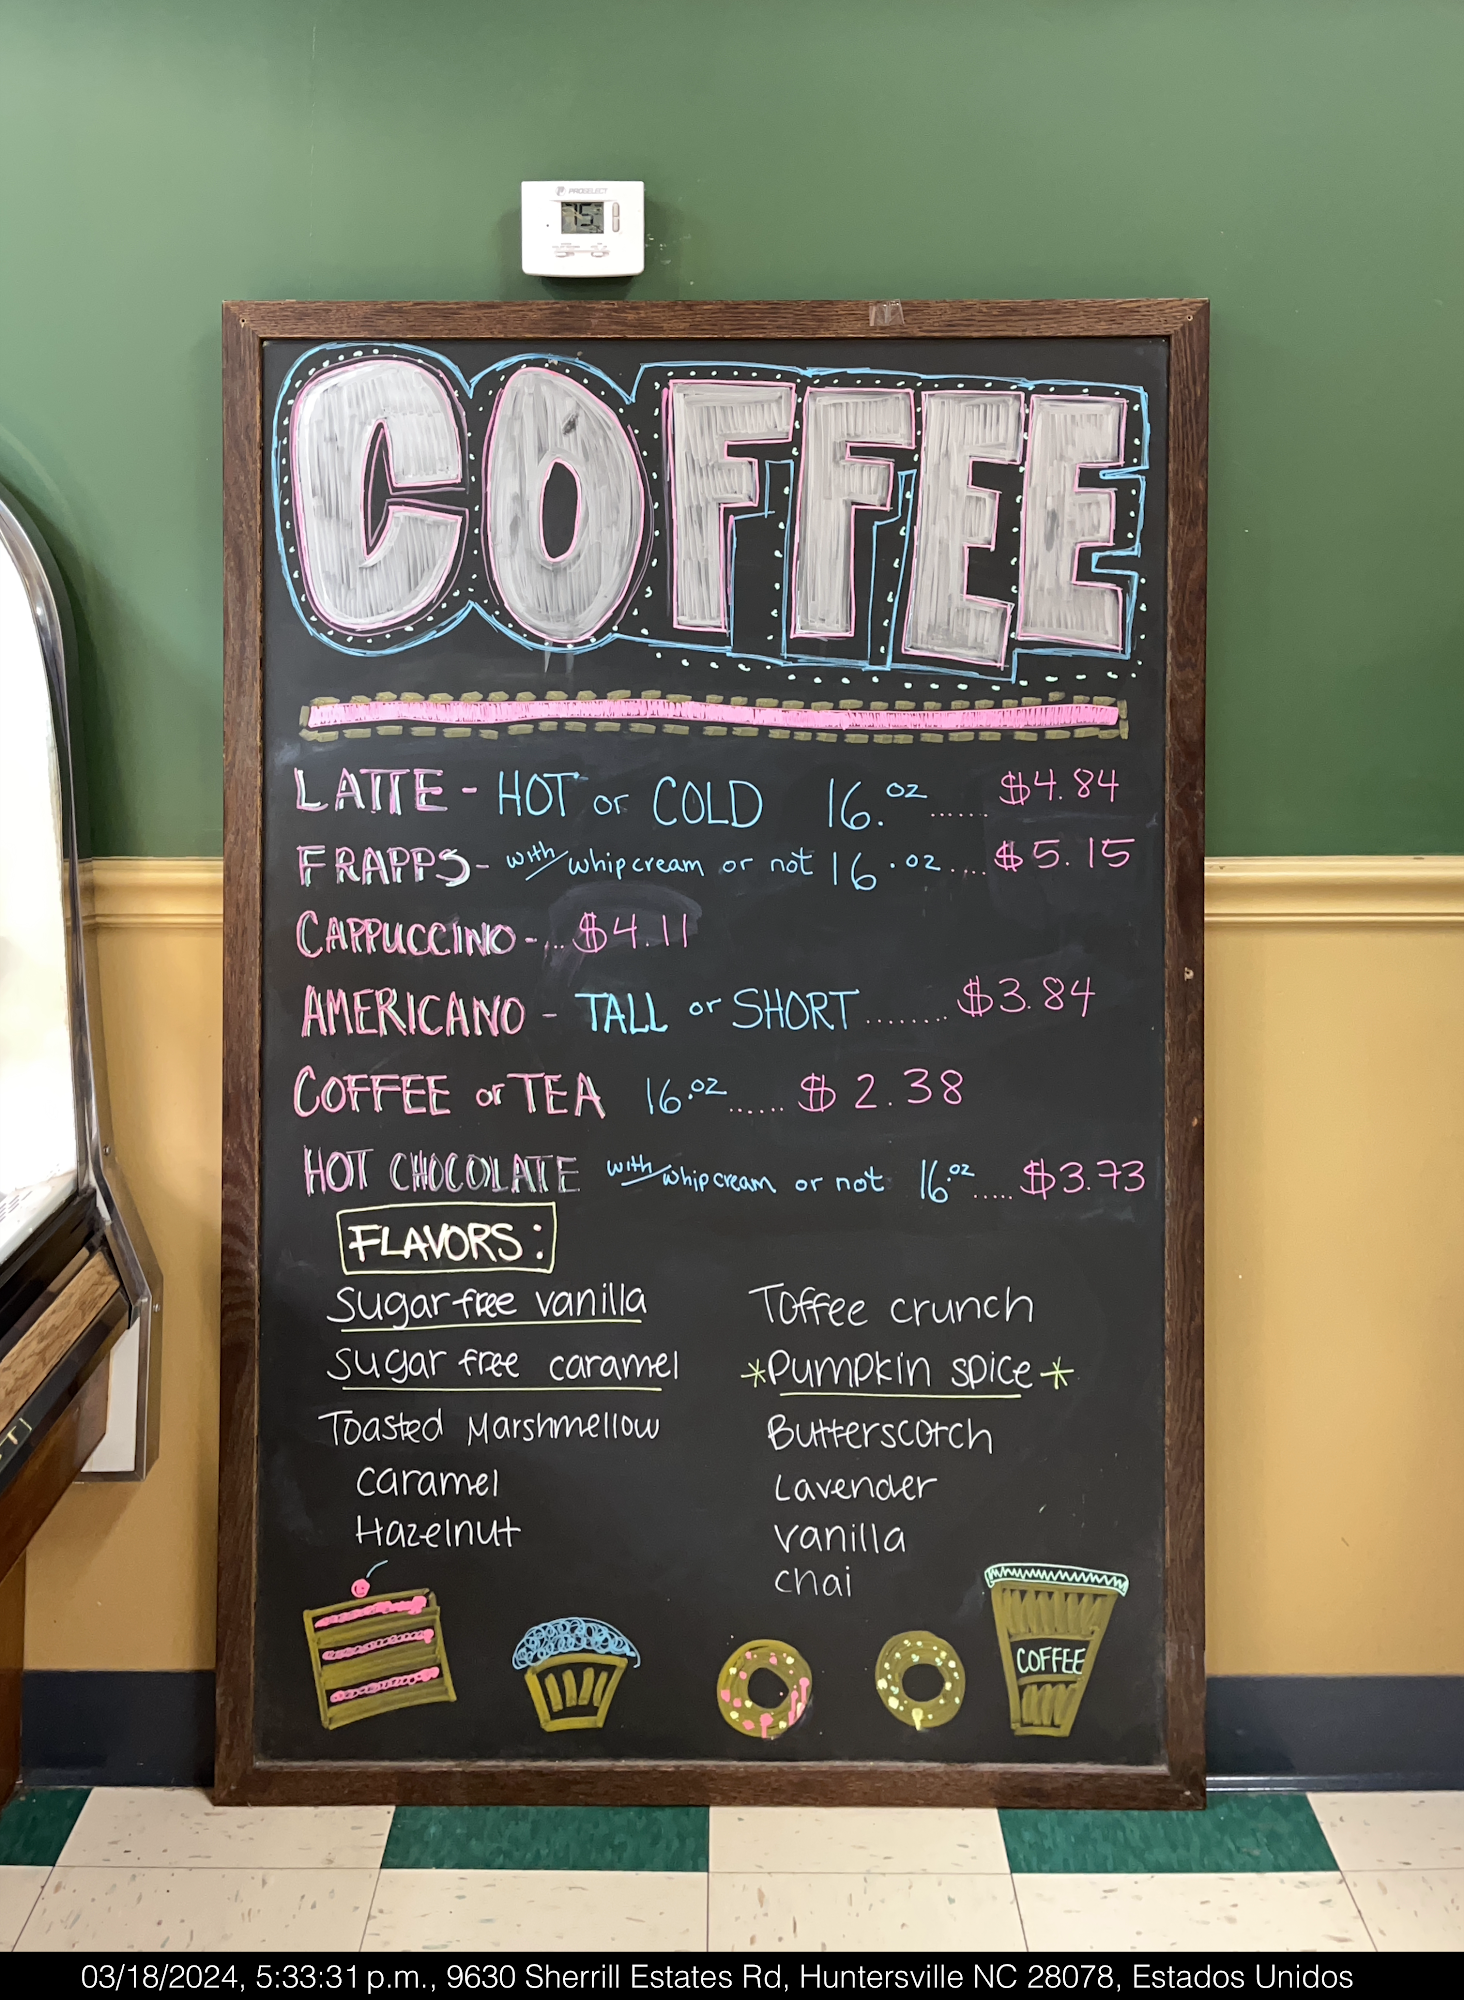 PROSELECT
75
COFFEE
LATTE - HOT or COLD 16.oz ...... $4.84
FRAPPS - with/whipcream or not 16.oz .... $5.15
CAPPUCCINO -... $4.11
AMERICANO - TALL or SHORT ........ $3.84
COFFEE or TEA 16.oz ...... $2.38
HOT CHOCOLATE with/whipcream or not 16.oz ..... $3.73
FLAVORS:
Sugar free vanilla
Sugar free caramel
Toasted Marshmellow
Caramel
Hazelnut
Toffee crunch
*Pumpkin spice*
Butterscotch
Lavender
vanilla
chai
COFFEE
03/18/2024, 5:33:31 p.m., 9630 Sherrill Estates Rd, Huntersville NC 28078, Estados Unidos